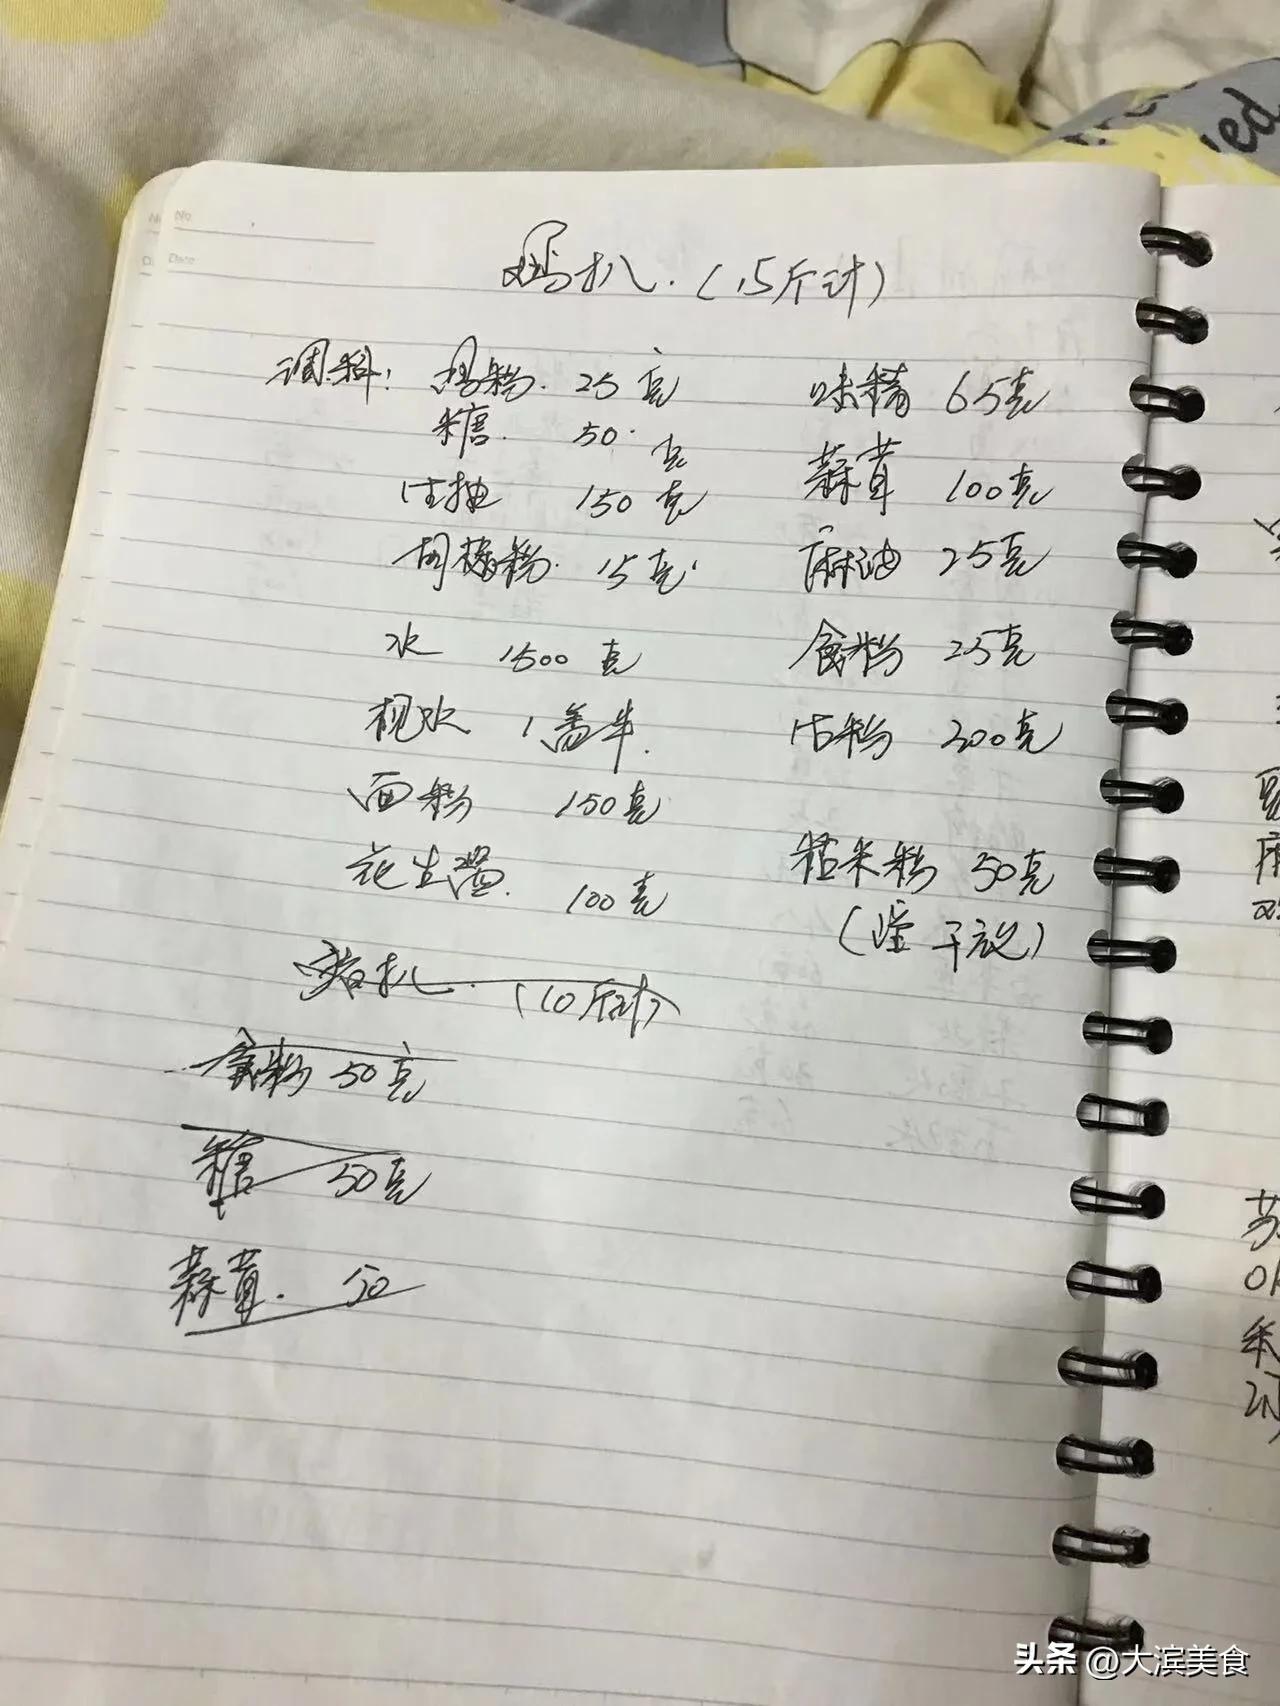 No
Date
鸡扒.(15斤计)
调料: 鸡粉. 25克 味精 65克
糖. 50.克 蒜茸 100克
生抽 150克 麻油 25克
胡椒粉. 15克 食粉 25克
水 1500克
枧水 1盖半. 生粉 200克
面粉 150克
花生酱. 100克 糯米粉 50克
猪扒.(10斤计)
食粉 50克
糖 50克
蒜茸. 50
头条 @大滨美食